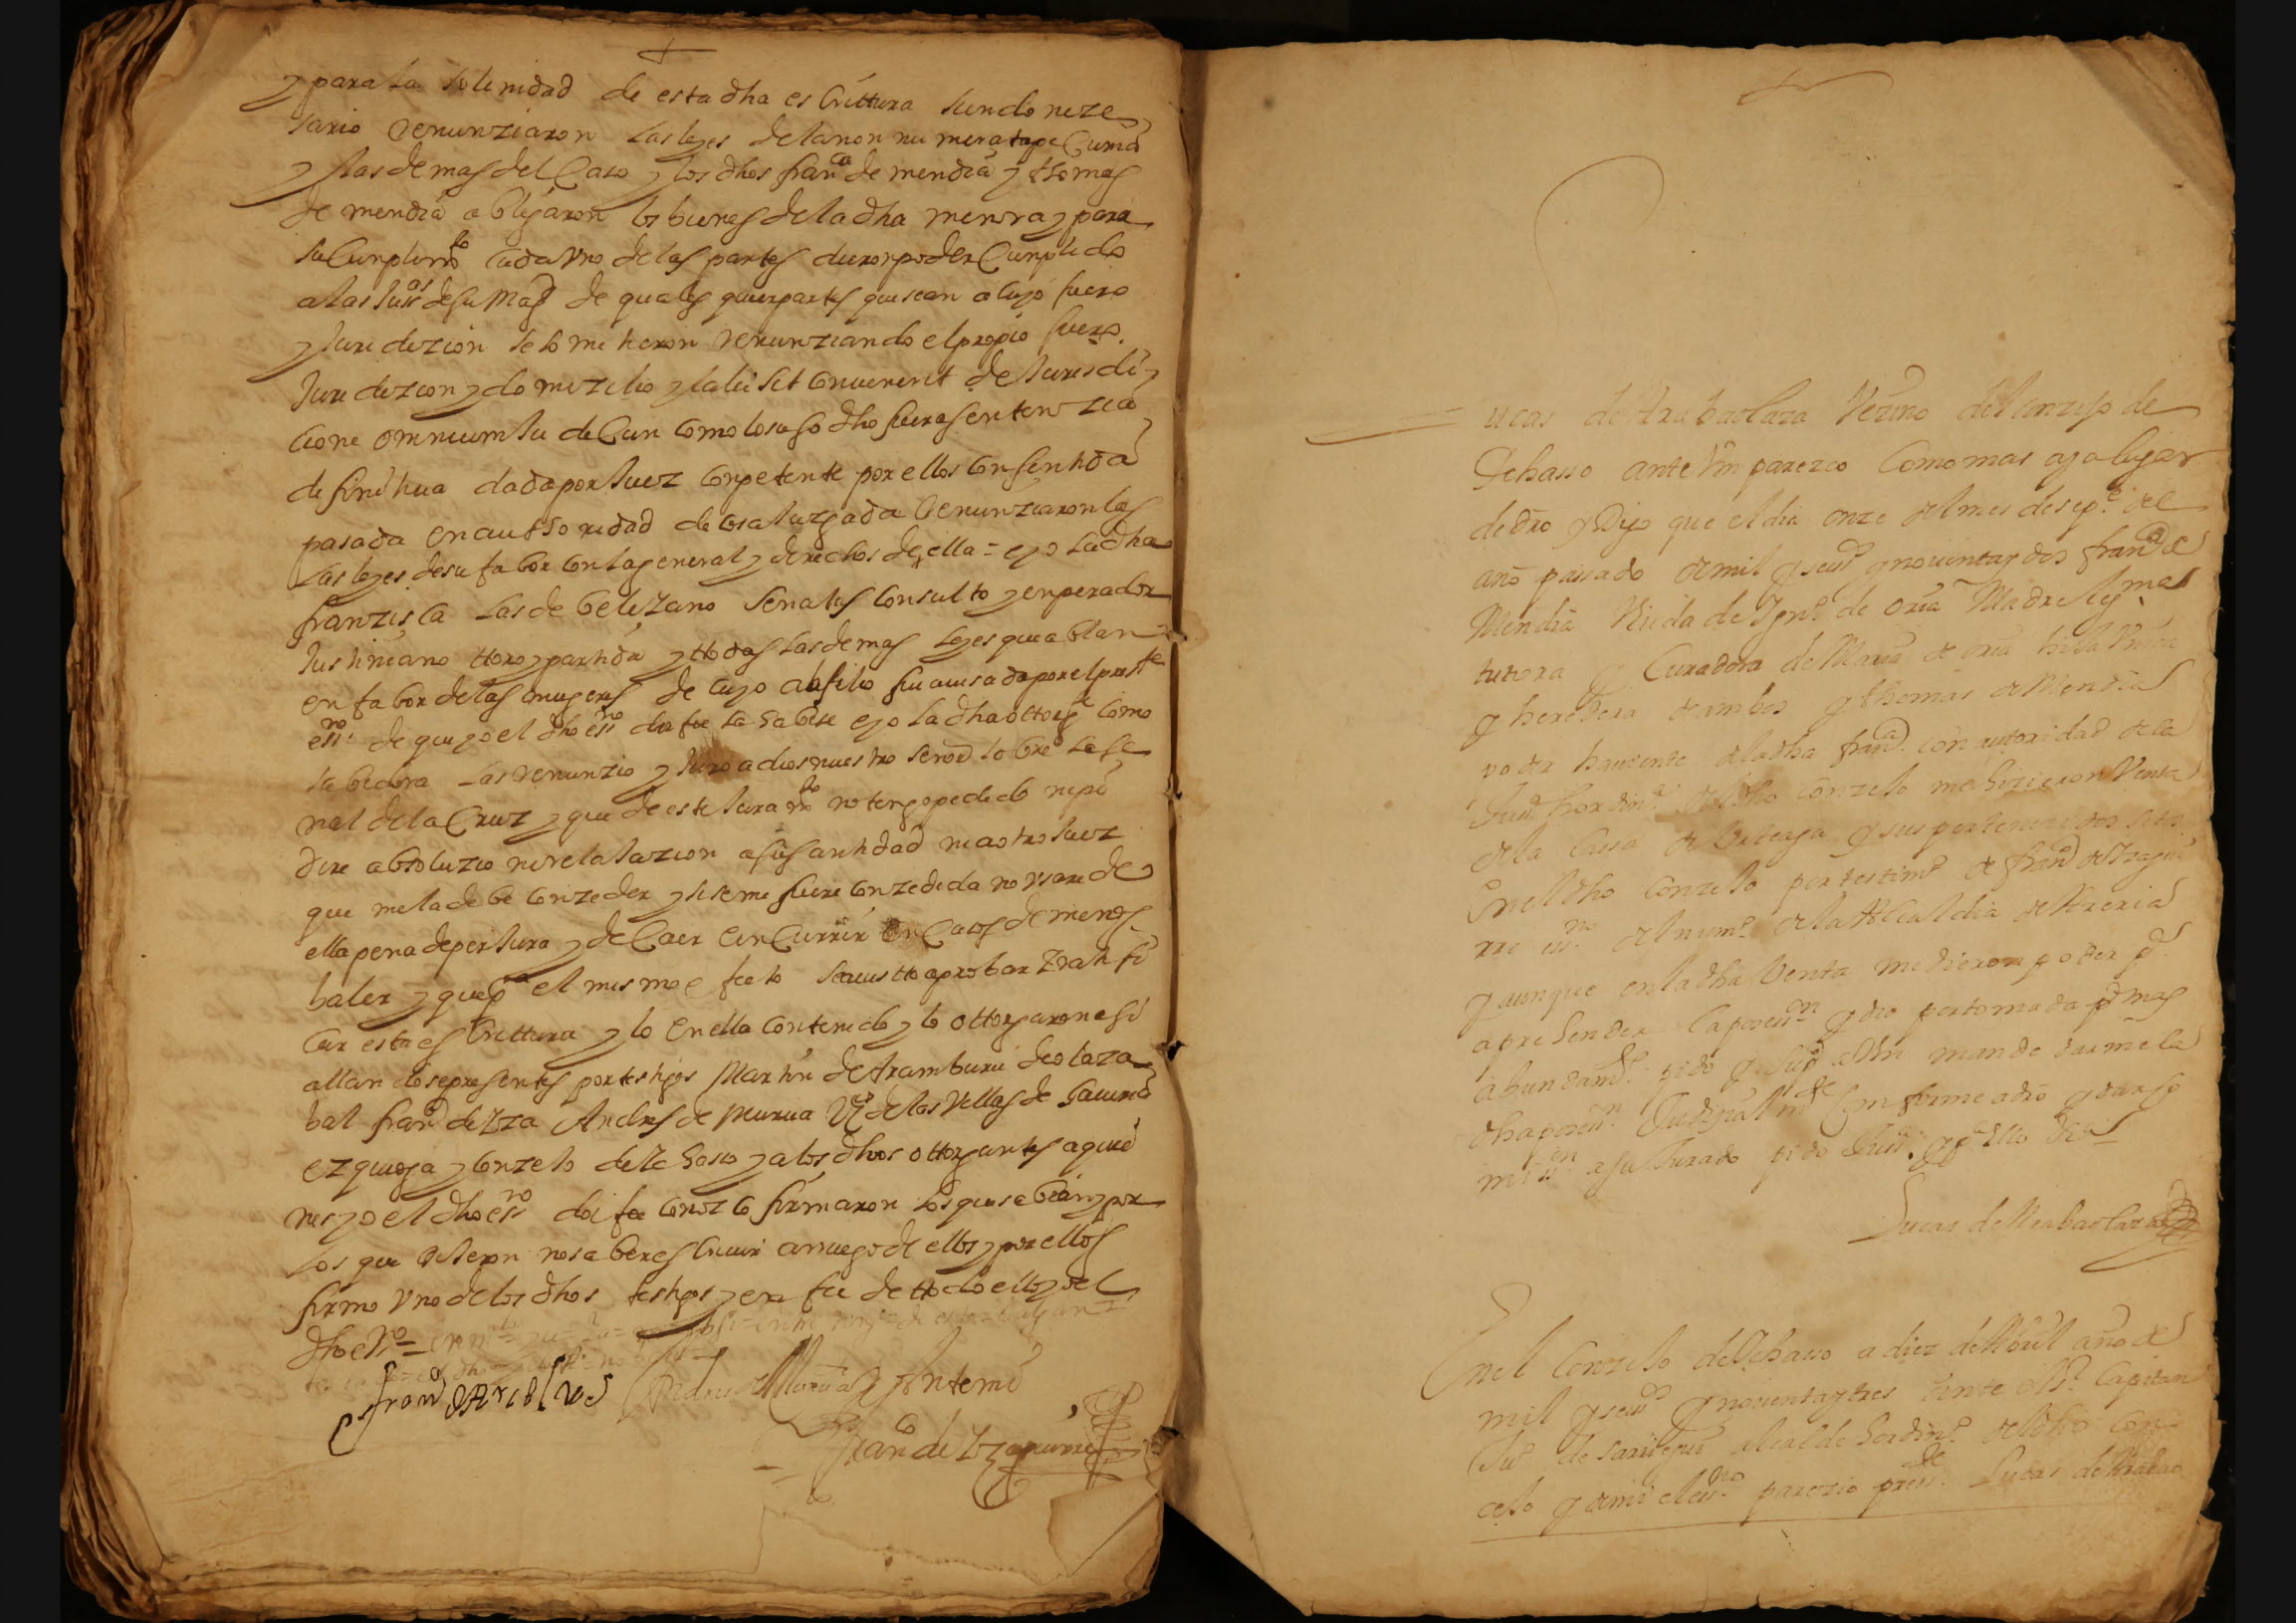 y para la solenidad de esta dha escrittura siendo neze
sario renunziaron las leyes de la non numerata pecunia
y las demas del Caso y los dhos franca de mendia y thomas
de mendia obligaron los bienes de la dha menora y para
su Cunplimto cada vno de las partes dieron poder Cunplido
a las Jusas de su Magd de quales quier partes que sean a cuyo fuero
y Juridizion se sometieron renunziando el propio fuero
Juridizion y domizilio y la lei sit convenerit de Jurisdi
cione omnium Judicun como lo susodho fuera sentenzia
difinitiua dada por Juez conpetente por ellos consentida
pasada en authoridad de cosa Juzgada renunziaron las
las leyes de su fabor con la general y derechos de ella = e yo la dha
franzisca las de beleZano Senatus Consulto y enperador
Justiniano ttoro y partida y ttodas las demas leyes que ablan
en fabor de las mugeres de cuyo ausilio fui auisada por el preste
essno de que yo el dho essno doi fee la sabese e yo la dha ottorgte como
sabedora las renunzio y Juro a dios nuestro Señor sobre la se
ñal de la Cruz y que de este Juramto no tengo pedido ni pi
dire absoluzio ni relaxazion a su santidad ni a otro Juez
que me la debe conzeder y si se me fuere conzedida no vsare de
ella pena de perJura y de Caer e inCurrir en Caso de menos
baler y que pa el mismo efecto se auisto aprobar Ratifi
car esta escrittura y lo en ella contenido y lo ottorgaron asi
allandose presentes por testigos Martin de Aramburu de olaza
bal franco de Yza Andres de Murua Vos de las Villas de
ezquioga y Conzejo de Ychaso y a los dhos ottorgantes a quie
nes yo el dho essno doi fee conozco firmaron los que sabian y por
los que dijeron no saber escriuir a rruego de ellos y por ellos
firmo vno de los dhos testigos y en fee de ttodo ello yo el
dho essno =
Andres de Murua Ante mi
Franco de Yzaguirre
Lucas de Arabaolaza Vezino del Conzejo de
Ychasso ante Vm parezco Como mas aya lugar
de dro y Digo que el dia onze del mes de sepe del
año passado de mil y seiss y nouenta y dos franca de
Mendia Viuda de Ygno de oria Madre lejma
tutora y Curadora de Maria de oria hija Vnica
y heredera de ambos y thomas de Mendia
poder hauiente de la dha franca con autoridad de la
Justa hordina del dho Conzejo me hizieron Venta
de la Cassa de y sus pertenezidos sita
en el dho Conzejo por testimo de franco de Yzagui
rre essno del numo de la Alcaldia de Areria
y aunque en la dha Venta me dieron poder pa
aprehender la possn y doi por tomada pa mas
abundamto pido y suppco a Vm mande darme la
dha possn Judizialmte Conforme a dro y dar so
missn a su Jurado pido Justa y pa ello Va
Lucas de Arabaolaza
En el Conzejo de Ychasso a diez de Abril año de
mil y seiss y nouenta y tres ante el Sr Capitan
Juo de alcalde hordino del dho Con
cejo y de mi el essno parezio presste Lucas de Arabao